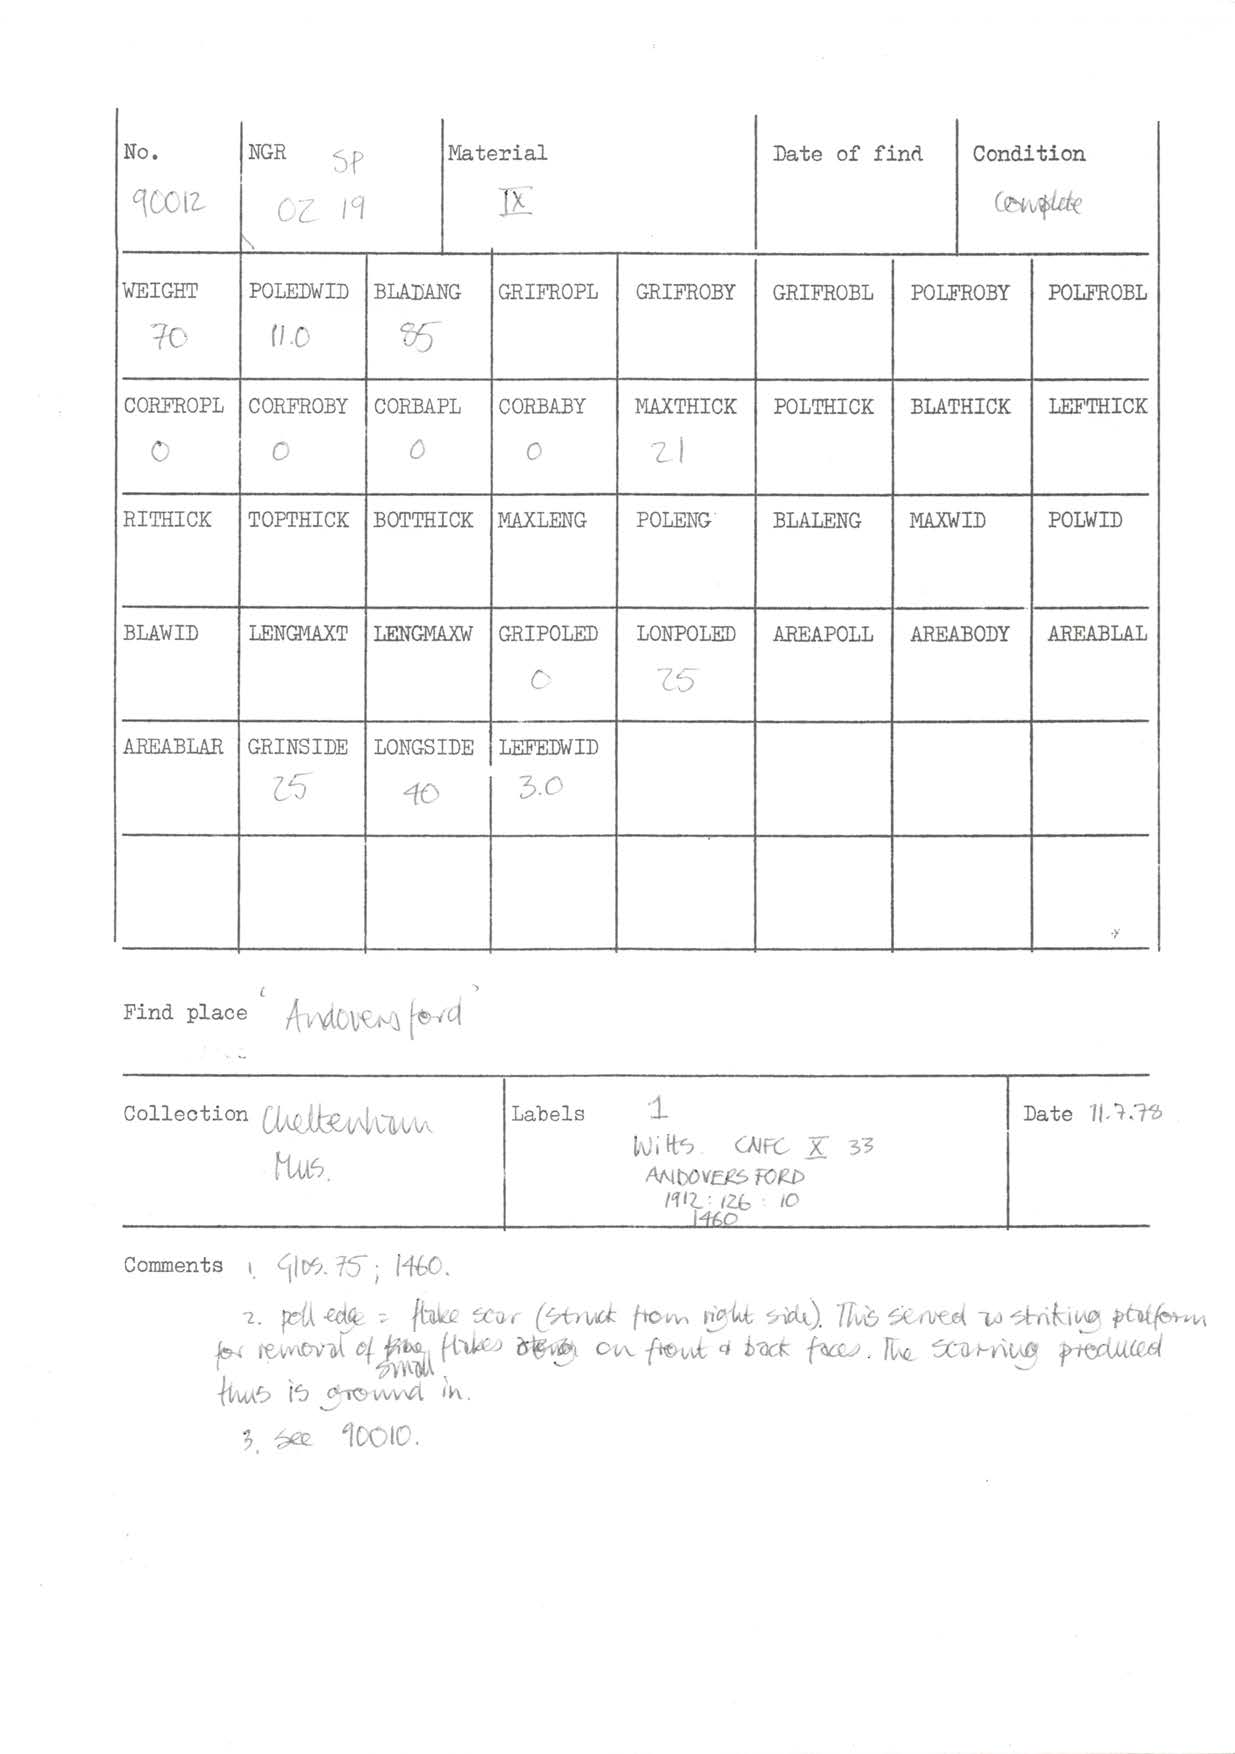 No. NGR SP Material Date of find Condition
90012 02 19 IX Complete
WEIGHT POLEDWID BLADANG GRIFROPL GRIFROBY GRIFROBL POLFROBY POLFROBL
70 11.0 85
CORFROPL CORFROBY CORBAPL CORBABY MAXTHICK POLTHICK BLATHICK LEFTHICK
0 0 0 0 21
RITHICK TOPTHICK BOTTHICK MAXLENG POLENG BLALENG MAXWID POLWID
BLAWID LENGMAXT LENGMAXW GRIPOLED LONPOLED AREAPOLL AREABODY AREABLAL
0 25
AREABLAR GRINSIDE LONGSIDE LEFEDWID
25 40 3.0
Find place 'Andoversford'
Collection Cheltenham Labels 1 Date 11.7.78
Mus. Witts. CNFC X 33
ANDOVERSFORD
1912:126:10
1460
Comments 1. Glos. 75; 1460.
2. poll edge = flake scar (struck from right side). This served as striking platform
for removal of small flakes on front & back faces. The scarring produced
thus is ground in.
3. see 90010.